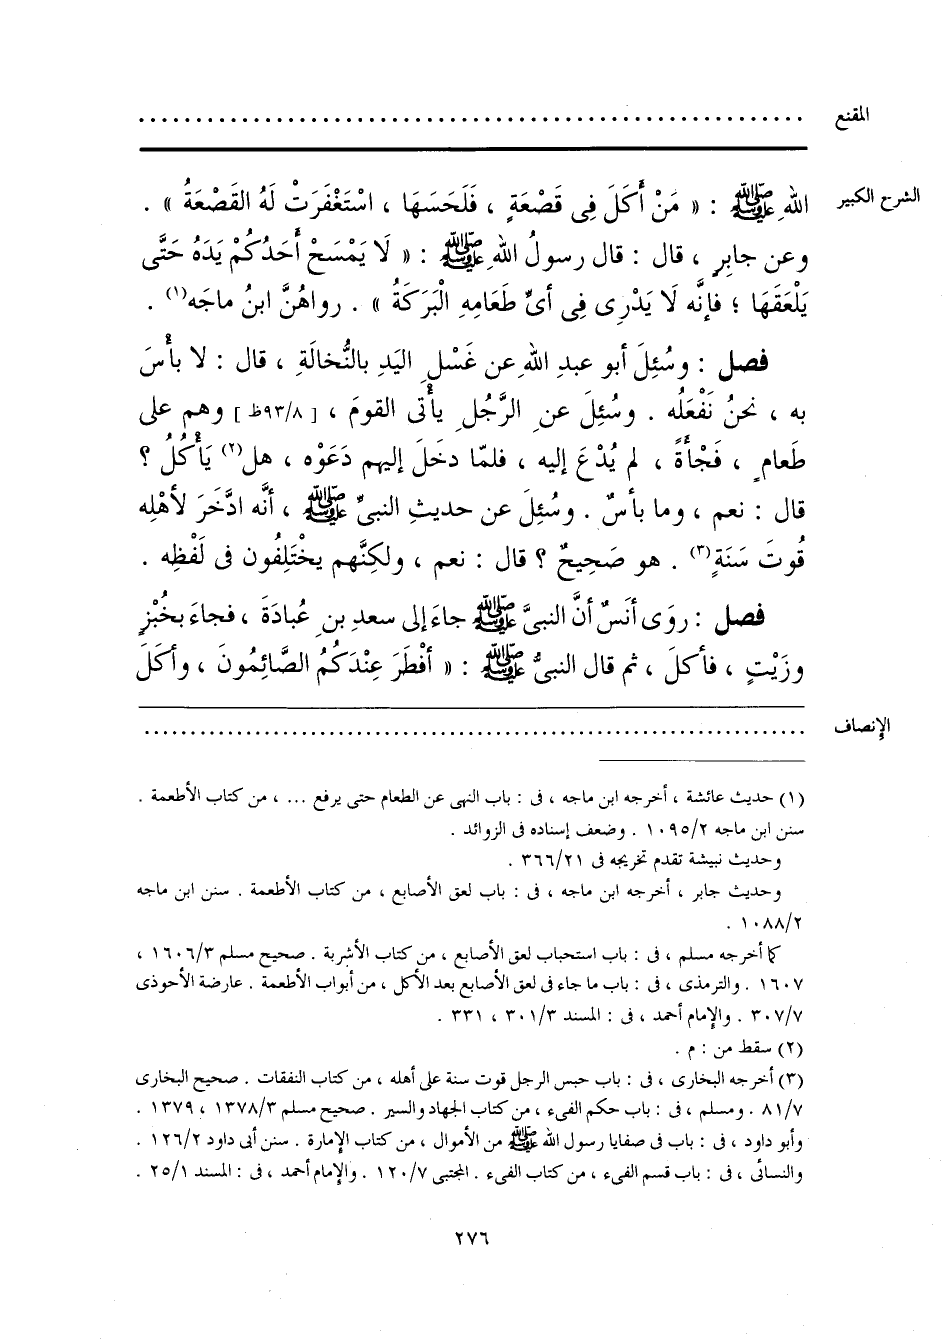 المقنع ............................................................
الشرح الكبير
اللهِ ﷺ : « مَنْ أَكَلَ فِى قَصْعَةٍ ، فَلَحَسَهَا ، اسْتَغْفَرَتْ لَهُ القَصْعَةُ » .
وعن جابِرٍ ، قال : قال رسولُ اللهِ ﷺ : « لَا يَمْسَحْ أَحَدُكُمْ يَدَهُ حَتَّى
يَلْعَقَهَا ؛ فإنَّه لَا يَدْرِى فِى أىِّ طَعَامِهِ الْبَرَكَةُ » . رواهُنَّ ابنُ ماجَه(١) .
فصل : وسُئِلَ أبو عبدِ اللهِ عن غَسْلِ اليَدِ بالنُّخالَةِ ، قال : لا بأْسَ
به ، نحنُ نَفْعَلُه . وسُئِلَ عنِ الرَّجُلِ يأْتِى القومَ ، [ ٩٣/٨ظ ] وهم على
طَعامٍ ، فَجْأَةً ، لم يُدْعَ إليه ، فلمّا دخَلَ إليهم دَعَوْه ، هل(٢) يَأْكُلُ ؟
قال : نعم ، وما بأسٌ . وسُئِلَ عن حديثِ النبىِّ ﷺ ، أنَّه ادَّخَرَ لأهْلِه
قُوتَ سَنَةٍ(٣) . هو صَحِيحٌ ؟ قال : نعم ، ولكِنَّهم يخْتَلِفُون فى لَفْظِه .
فصل : روَى أنَسٌ أنَّ النبىَّ ﷺ جاءَ إلى سعدِ بنِ عُبادَةَ ، فجاءَ بخُبْزٍ
وزَيْتٍ ، فأكلَ ، ثم قال النبىُّ ﷺ : « أَفْطَرَ عِنْدَكُمُ الصَّائِمُونَ ، وأكَلَ
الإنصاف ............................................................
(١) حديث عائشة ، أخرجه ابن ماجه ، فى : باب النهى عن الطعام حتى يرفع ... ، من كتاب الأطعمة .
سنن ابن ماجه ١٠٩٥/٢ . وضعف إسناده فى الزوائد .
وحديث نبيشة تقدم تخريجه فى ٣٦٦/٢١ .
وحديث جابر ، أخرجه ابن ماجه ، فى : باب لعق الأصابع ، من كتاب الأطعمة . سنن ابن ماجه
١٠٨٨/٢ .
كما أخرجه مسلم ، فى : باب استحباب لعق الأصابع ، من كتاب الأشربة . صحيح مسلم ١٦٠٦/٣ ،
١٦٠٧ . والترمذى ، فى : باب ما جاء فى لعق الأصابع بعد الأكل ، من أبواب الأطعمة . عارضة الأحوذى
٣٠٧/٧ . والإمام أحمد ، فى : المسند ٣٠١/٣ ، ٣٣١ .
(٢) سقط من : م .
(٣) أخرجه البخارى ، فى : باب حبس الرجل قوت سنة على أهله ، من كتاب النفقات . صحيح البخارى
٨١/٧ . ومسلم ، فى : باب حكم الفىء ، من كتاب الجهاد والسير . صحيح مسلم ١٣٧٨/٣ ، ١٣٧٩ .
وأبو داود ، فى : باب فى صفايا رسول الله ﷺ من الأموال ، من كتاب الإمارة . سنن أبى داود ١٢٦/٢ .
والنسائى ، فى : باب قسم الفىء ، من كتاب الفىء . المجتبى ١٢٠/٧ . والإمام أحمد ، فى : المسند ٢٥/١ .
٢٧٦